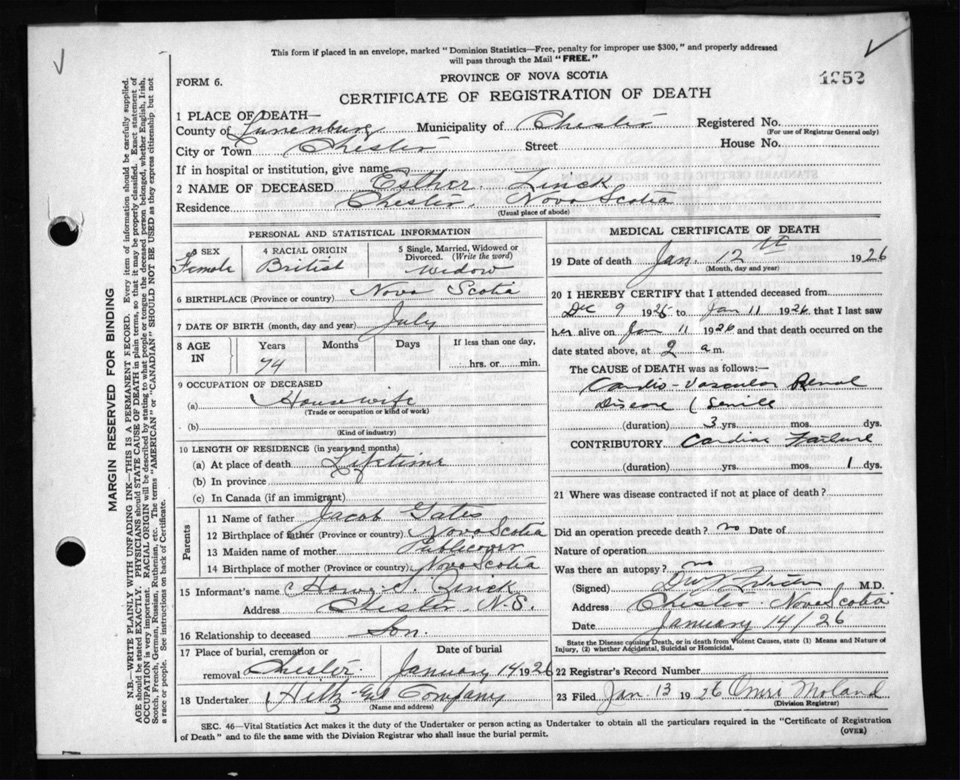 This form if placed in an envelope, marked "Dominion Statistics—Free, penalty for improper use $300," and properly addressed
will pass through the Mail "FREE."
FORM 6.
PROVINCE OF NOVA SCOTIA
1952
CERTIFICATE OF REGISTRATION OF DEATH
1 PLACE OF DEATH—
County of Lunenburg Municipality of Chester Registered No.
(For use of Registrar General only)
City or Town Chester Street House No.
If in hospital or institution, give name
2 NAME OF DECEASED Esther Zinck
Residence Chester, Nova Scotia
(Usual place of abode)
PERSONAL AND STATISTICAL INFORMATION
3 SEX
Female
4 RACIAL ORIGIN
British
5 Single, Married, Widowed or
Divorced. (Write the word)
Widow
6 BIRTHPLACE (Province or country) Nova Scotia
7 DATE OF BIRTH (month, day and year) July
8 AGE
IN
Years Months Days If less than one day,
74 hrs. or min.
9 OCCUPATION OF DECEASED
(a) Housewife
(Trade or occupation or kind of work)
(b)
(Kind of industry)
10 LENGTH OF RESIDENCE (in years and months)
(a) At place of death Lifetime
(b) In province
(c) In Canada (if an immigrant)
Parents
11 Name of father Jacob Gates
12 Birthplace of father (Province or country) Nova Scotia
13 Maiden name of mother Publicover
14 Birthplace of mother (Province or country) Nova Scotia
15 Informant's name Zinck
Address Chester, N.S.
16 Relationship to deceased Son.
17 Place of burial, cremation or
removal Chester.
Date of burial
January 14 1926
18 Undertaker Company
3
(Name and address)
MEDICAL CERTIFICATE OF DEATH
19 Date of death Jan. 12th 1926
(Month, day and year)
20 I HEREBY CERTIFY that I attended deceased from
Dec 9 1925 to Jan 11 1926 that I last saw
her alive on Jan 11 1926 and that death occurred on the
date stated above, at 2 a m.
The CAUSE of DEATH was as follows:—
Cardio-Vascular Renal
Disease (Senile
(duration) 3 yrs. mos. dys.
CONTRIBUTORY Cardiac Failure
(duration) yrs. mos. 1 dys.
21 Where was disease contracted if not at place of death?
Did an operation precede death? no Date of
Nature of operation
Was there an autopsy? no
(Signed) M.D.
Address Chester. Nova Scotia
Date January 14/26
State the Disease causing Death, or in death from Violent Causes, state (1) Means and Nature of
Injury, (2) whether Accidental, Suicidal or Homicidal.
22 Registrar's Record Number
23 Filed Jan. 13 1926 Moland
(Division Registrar)
SEC. 46—Vital Statistics Act makes it the duty of the Undertaker or person acting as Undertaker to obtain all the particulars required in the "Certificate of Registration
of Death" and to file the same with the Division Registrar who shall issue the burial permit.
(OVER)
MARGIN RESERVED FOR BINDING
N.B.—WRITE PLAINLY WITH UNFADING INK—THIS IS A PERMANENT RECORD. Every item of information should be carefully supplied.
AGE should be stated EXACTLY. PHYSICIANS should STATE CAUSE OF DEATH in plain terms, so that it may be properly classified. Exact statement of
OCCUPATION is very important. RACIAL ORIGIN will be described by stating to what people or tongue the deceased person belonged, whether English, Irish,
Scotch, French, German, Russian, Ruthenian, etc. The terms "AMERICAN" or "CANADIAN" SHOULD NOT BE USED as they express citizenship but not
a race or people. See instructions on back of Certificate.